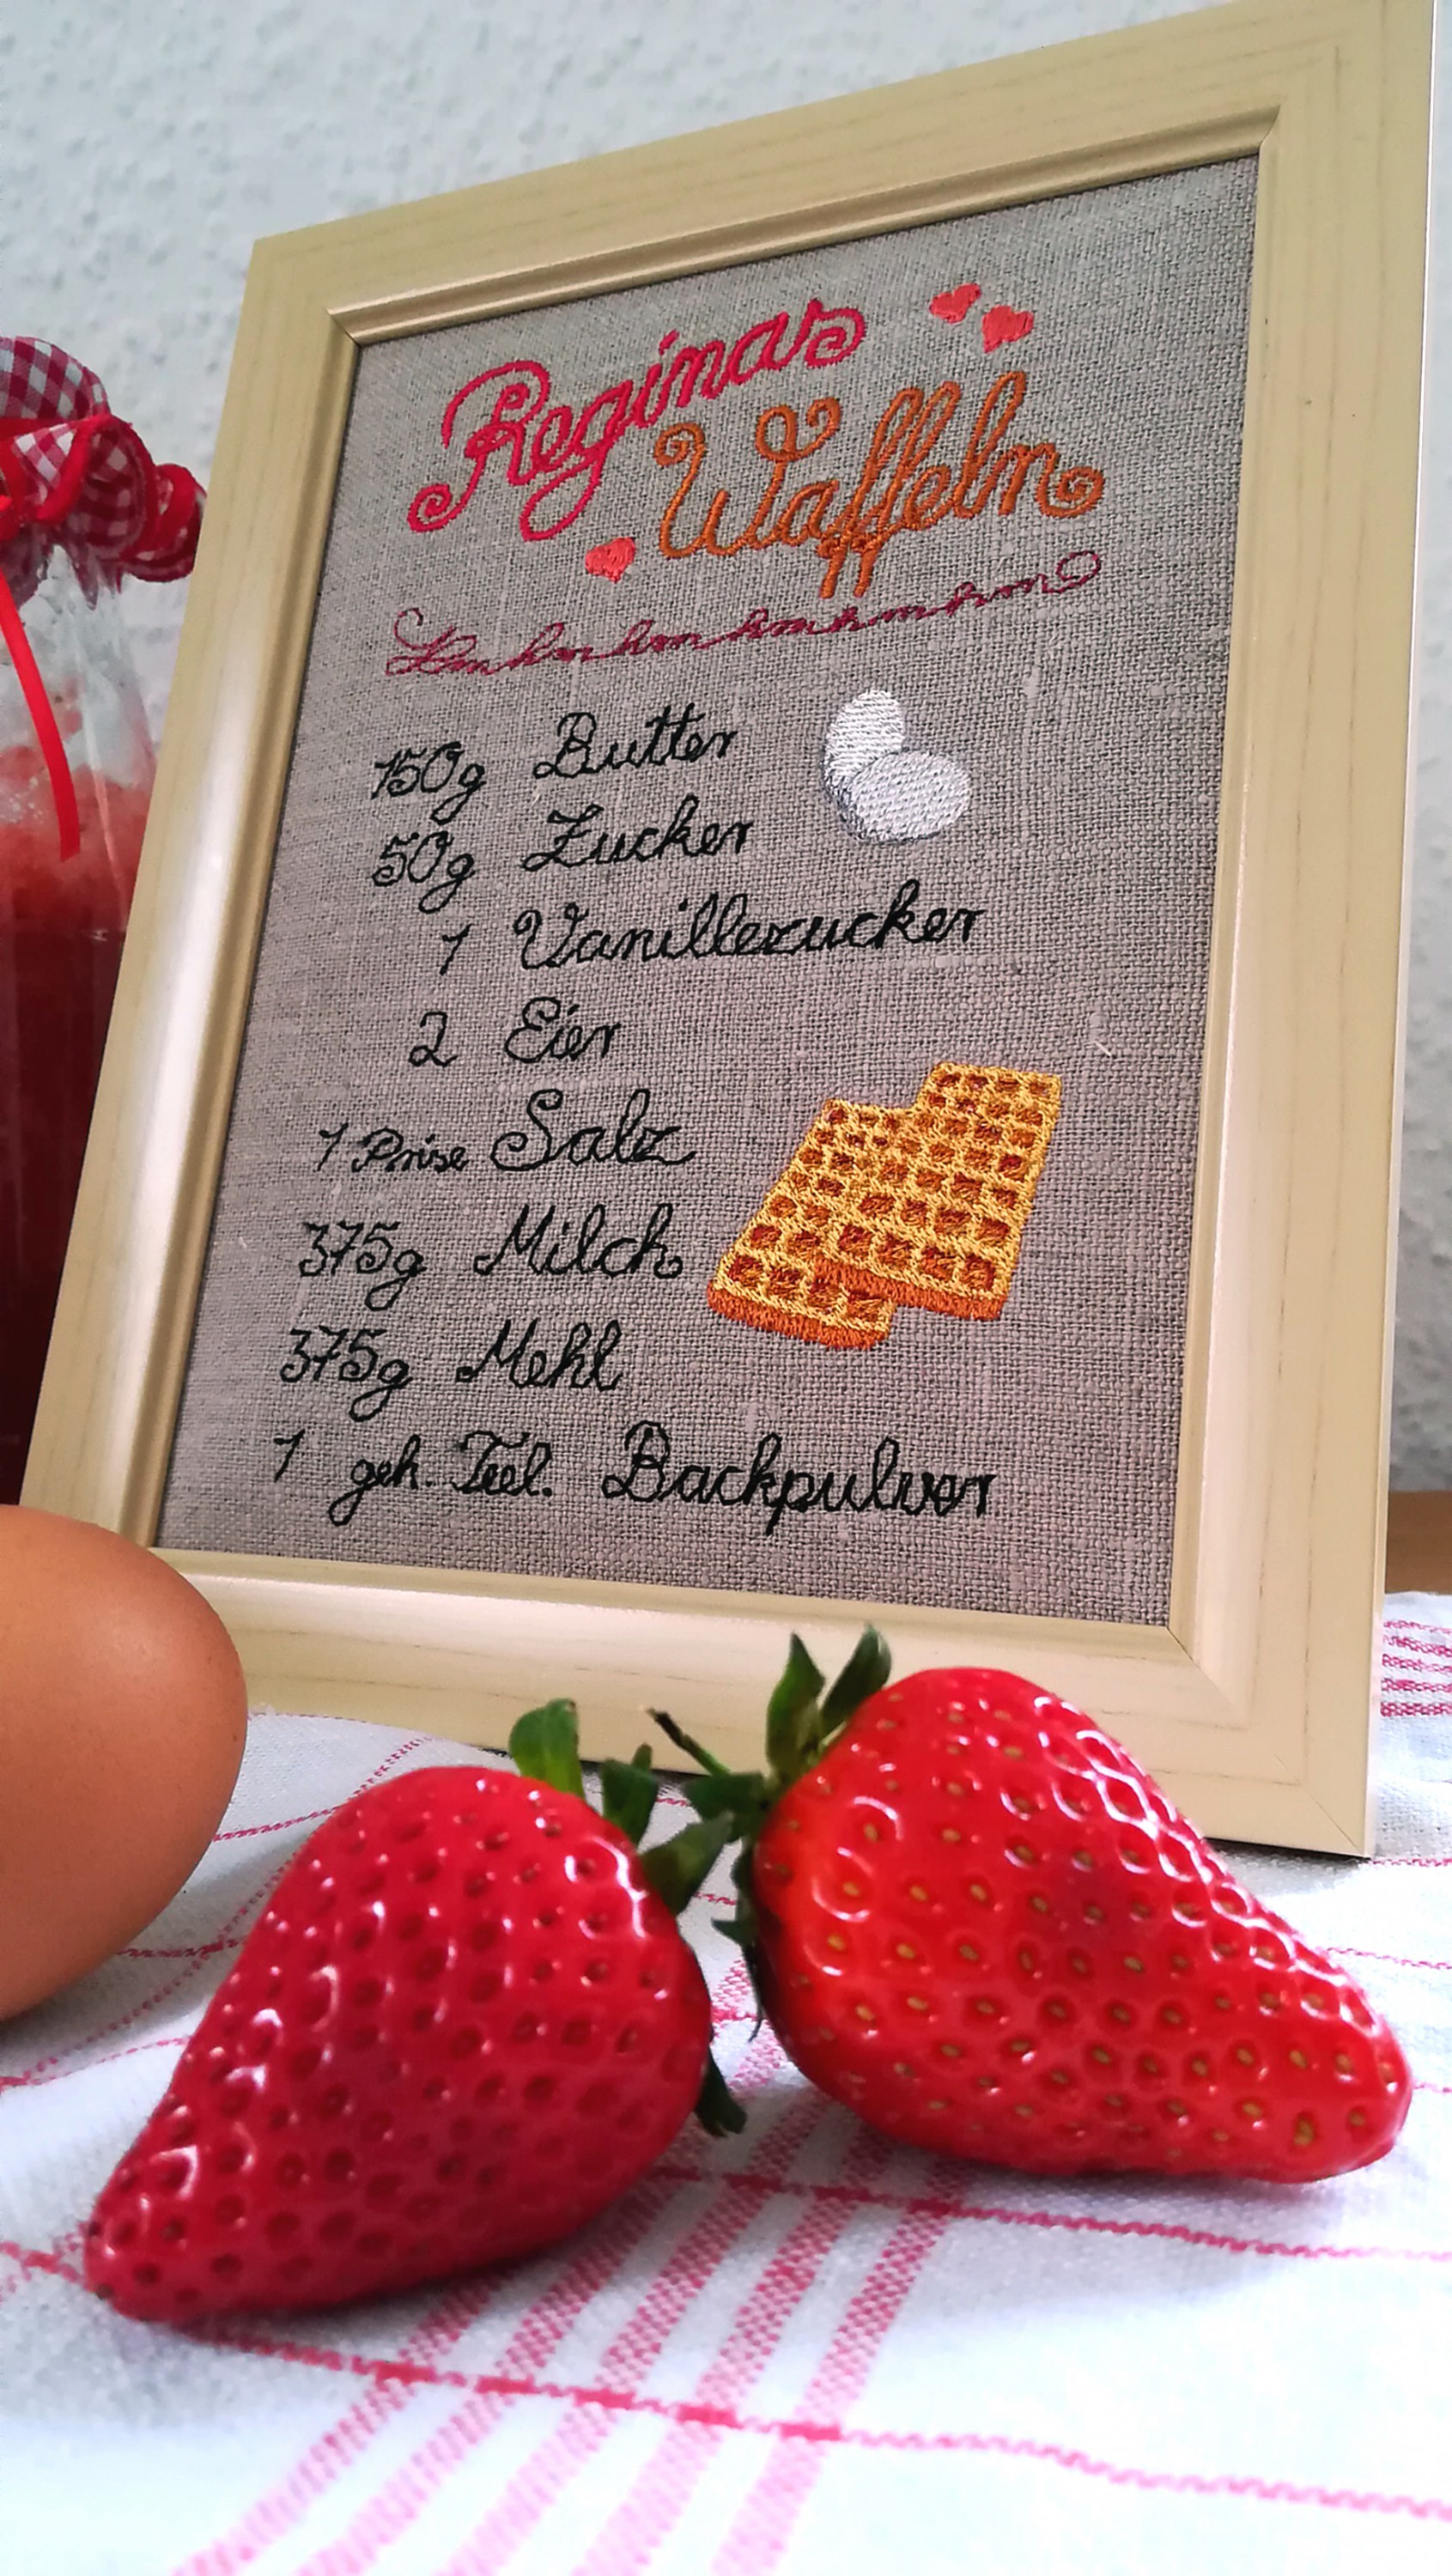 Reginas
Waffeln
150g Butter
50g Zucker
1 Vanillezucker
2 Eier
1 Prise Salz
375g Milch
375g Mehl
1 geh. Teel. Backpulver